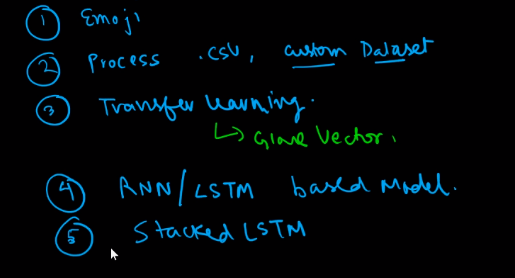 ① Emoji
② Process .csv, custom Dataset
③ Transfer learning.
↳ Glove Vector.
④ RNN/LSTM based Model.
⑤ Stacked LSTM